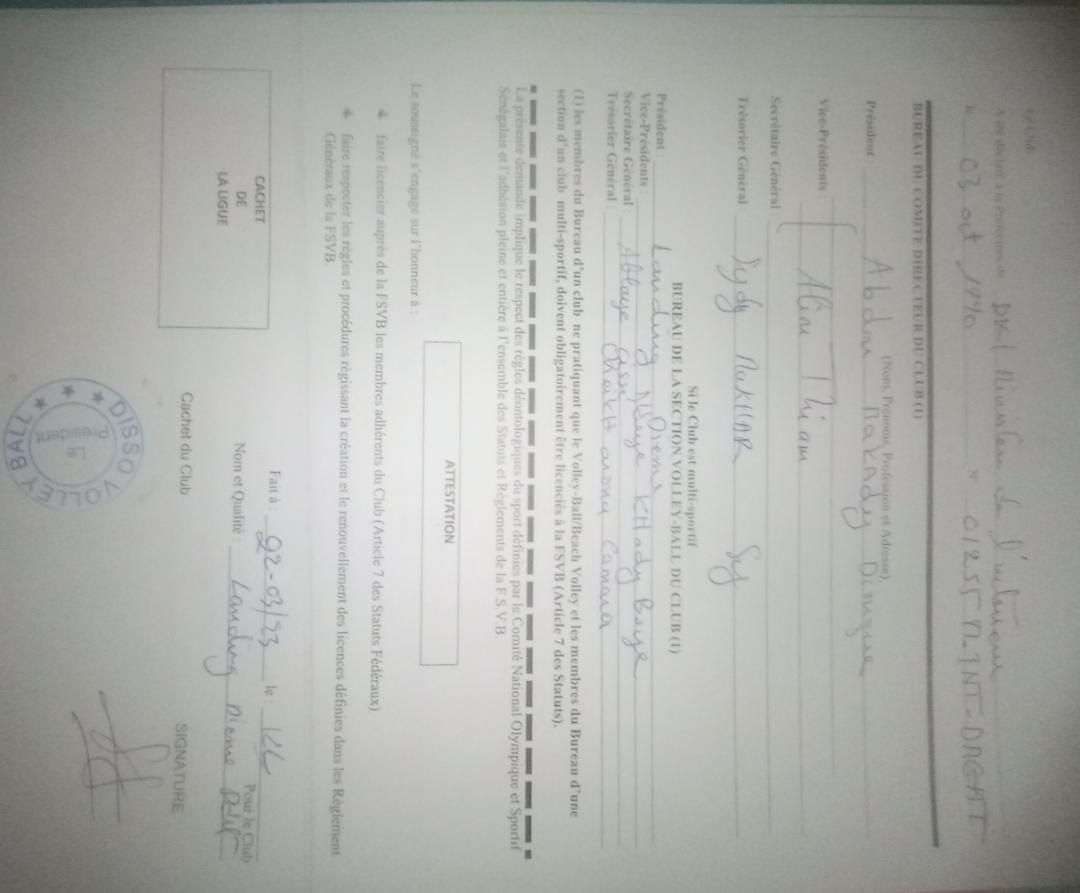 le Club
A été déclaré à la Préfecture de DKI Ministere de l'interieur
le 03 oct 1990 N° 01255 M.INT-DAGAT
BUREAU DU COMITE DIRECTEUR DU CLUB (1)
(Nom, Prénoms, Profession et Adresse)
Président : Abdou Makhdy Diongue
Vice-Présidents : Aliou Thiam
Secrétaire Général
Trésorier Général : Sydy MOKHTAR Sy
Si le Club est multi-sportif
BUREAU DE LA SECTION VOLLEY-BALL DU CLUB (1)
Président : Landing Dieme
Vice-Présidents : Ndeye KHady Baye
Secrétaire Général : Ablaye
Trésorier Général : Cheikh camara
(1) les membres du Bureau d'un club ne pratiquant que le Volley-Ball/Beach Volley et les membres du Bureau d'une
section d'un club multi-sportif, doivent obligatoirement être licenciés à la FSVB (Article 7 des Statuts).
La présente demande implique le respect des règles déontologiques du sport définies par le Comité National Olympique et Sportif
Sénégalais et l'adhésion pleine et entière à l'ensemble des Statuts et Règlements de la F.S.V.B.
ATTESTATION
Le soussigné s'engage sur l'honneur à :
faire licencier auprès de la FSVB les membres adhérents du Club (Article 7 des Statuts Fédéraux)
faire respecter les règles et procédures régissant la création et le renouvellement des licences définies dans les Règlement
Généraux de la FSVB
CACHET
DE
LA LIGUE
Fait à : 22-03/93 le : KL
Pour le Club
Nom et Qualité : Landing Dieme
Cachet du Club
SIGNATURE
DISSO VOLLEY BALL
Le
Président